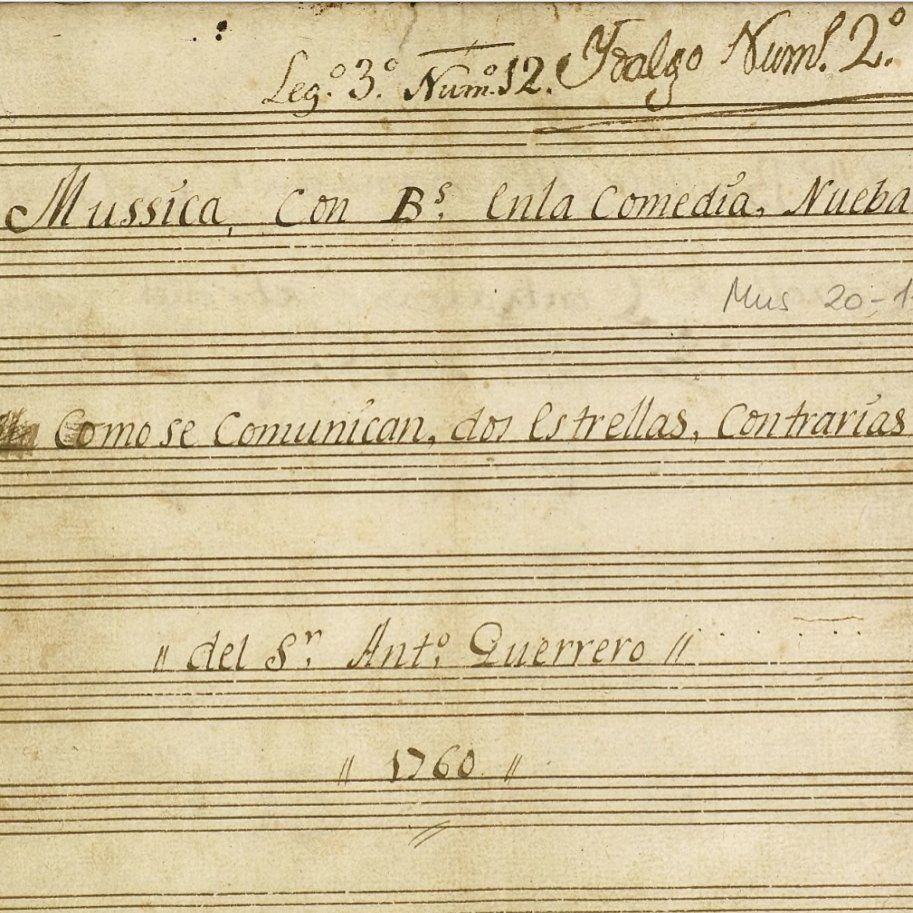 Leg.º 3.º Num.º 12. Ydalgo Numº. 2.º
Mussica, Con Bs. enla Comedia, Nueba
Mus 20-1
Como se Comunican, dos estrellas, Contrarias
" del Sr. Antº. Guerrero "
" 1760 "